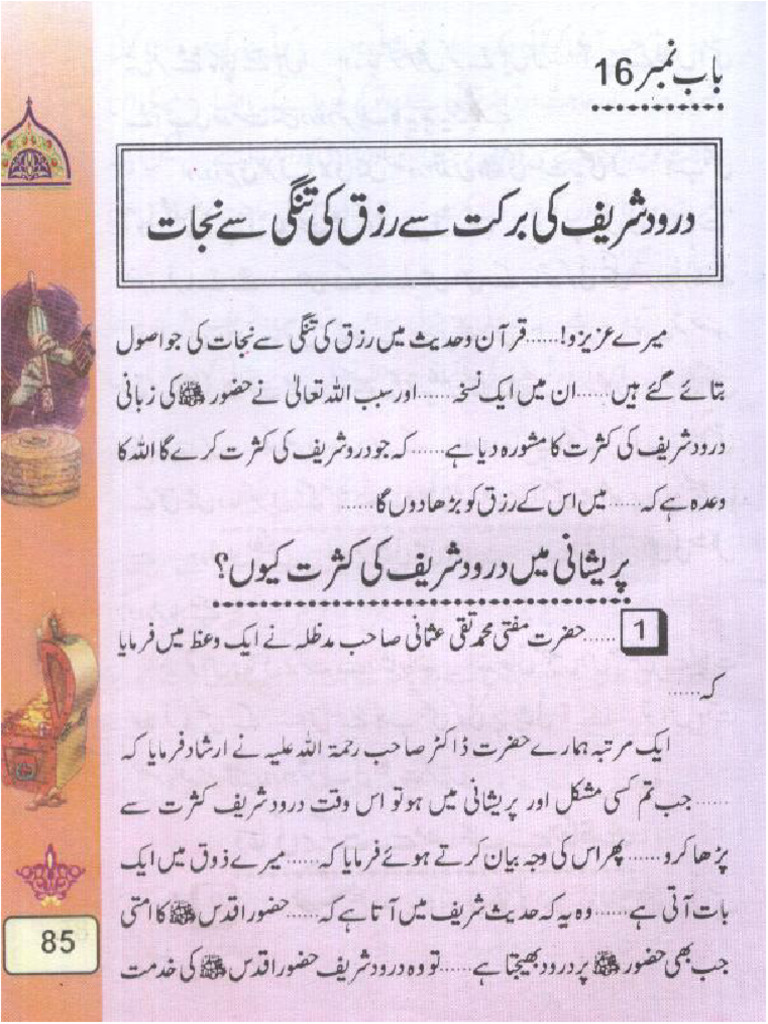 باب نمبر 16
درود شریف کی برکت سے رزق کی تنگی سے نجات
میرے عزیزو!......قرآن وحدیث میں رزق کی تنگی سے نجات کی جو اصول
بتائے گئے ہیں......ان میں ایک نسخہ......اور سبب اللہ تعالیٰ نے حضور ﷺ کی زبانی
درود شریف کی کثرت کا مشورہ دیا ہے......کہ جو درو شریف کی کثرت کرے گا اللہ کا
وعدہ ہے کہ......میں اس کے رزق کو بڑھا دوں گا......
پریشانی میں درود شریف کی کثرت کیوں؟
1 ......حضرت مفتی محمد تقی عثمانی صاحب مدظلہ نے ایک وعظ میں فرمایا
کہ......
ایک مرتبہ ہمارے حضرت ڈاکٹر صاحب رحمۃ اللہ علیہ نے ارشاد فرمایا کہ
......جب تم کسی مشکل اور پریشانی میں ہو تو اس وقت درود شریف کثرت سے
پڑھا کرو......پھر اس کی وجہ بیان کرتے ہوئے فرمایا کہ......میرے ذوق میں ایک
بات آتی ہے......وہ یہ کہ حدیث شریف میں آتا ہے کہ......حضور اقدس ﷺ کا امتی
جب بھی حضور ﷺ پر درود بھیجتا ہے......تو وہ درود شریف حضور اقدس ﷺ کی خدمت
85